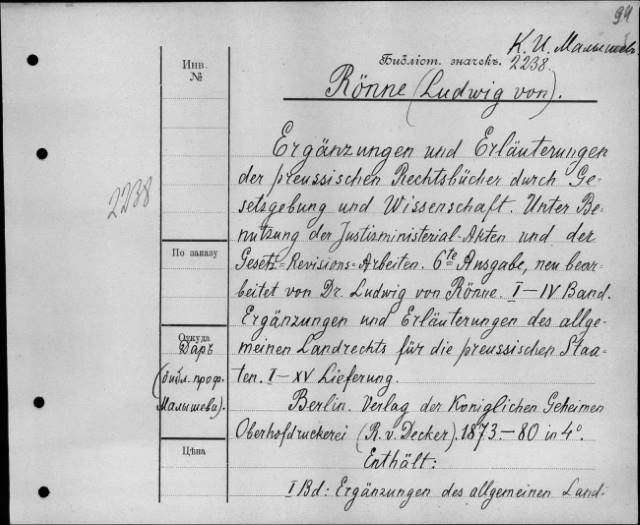 99
К. И. Малышевъ.
Библіот. значекъ. 2238.
Инв.
№
Rönne (Ludwig von).
Ergänzungen und Erläuterungen
der preussischen Rechtsbücher durch Ge-
setzgebung und Wissenschaft. Unter Be-
nutzung der Justizministerial-Akten und der
Gesetz=Revisions=Arbeiten. 6te Ausgabe, neu bear-
beitet von Dr. Ludwig von Rönne. I–IV Band.
Ergänzungen und Erläuterungen des allge-
meinen Landrechts für die preussischen Staa-
ten. I–XV Lieferung.
Berlin. Verlag der Königlichen Geheimen
Oberhofdruckerei (R. v. Decker). 1873.–80 in 4°.
Enthält:
I Bd: Ergänzungen des allgemeinen Land-
2238
По заказу
Откуда
Даръ
(библ. проф.
Малышева).
Цѣна